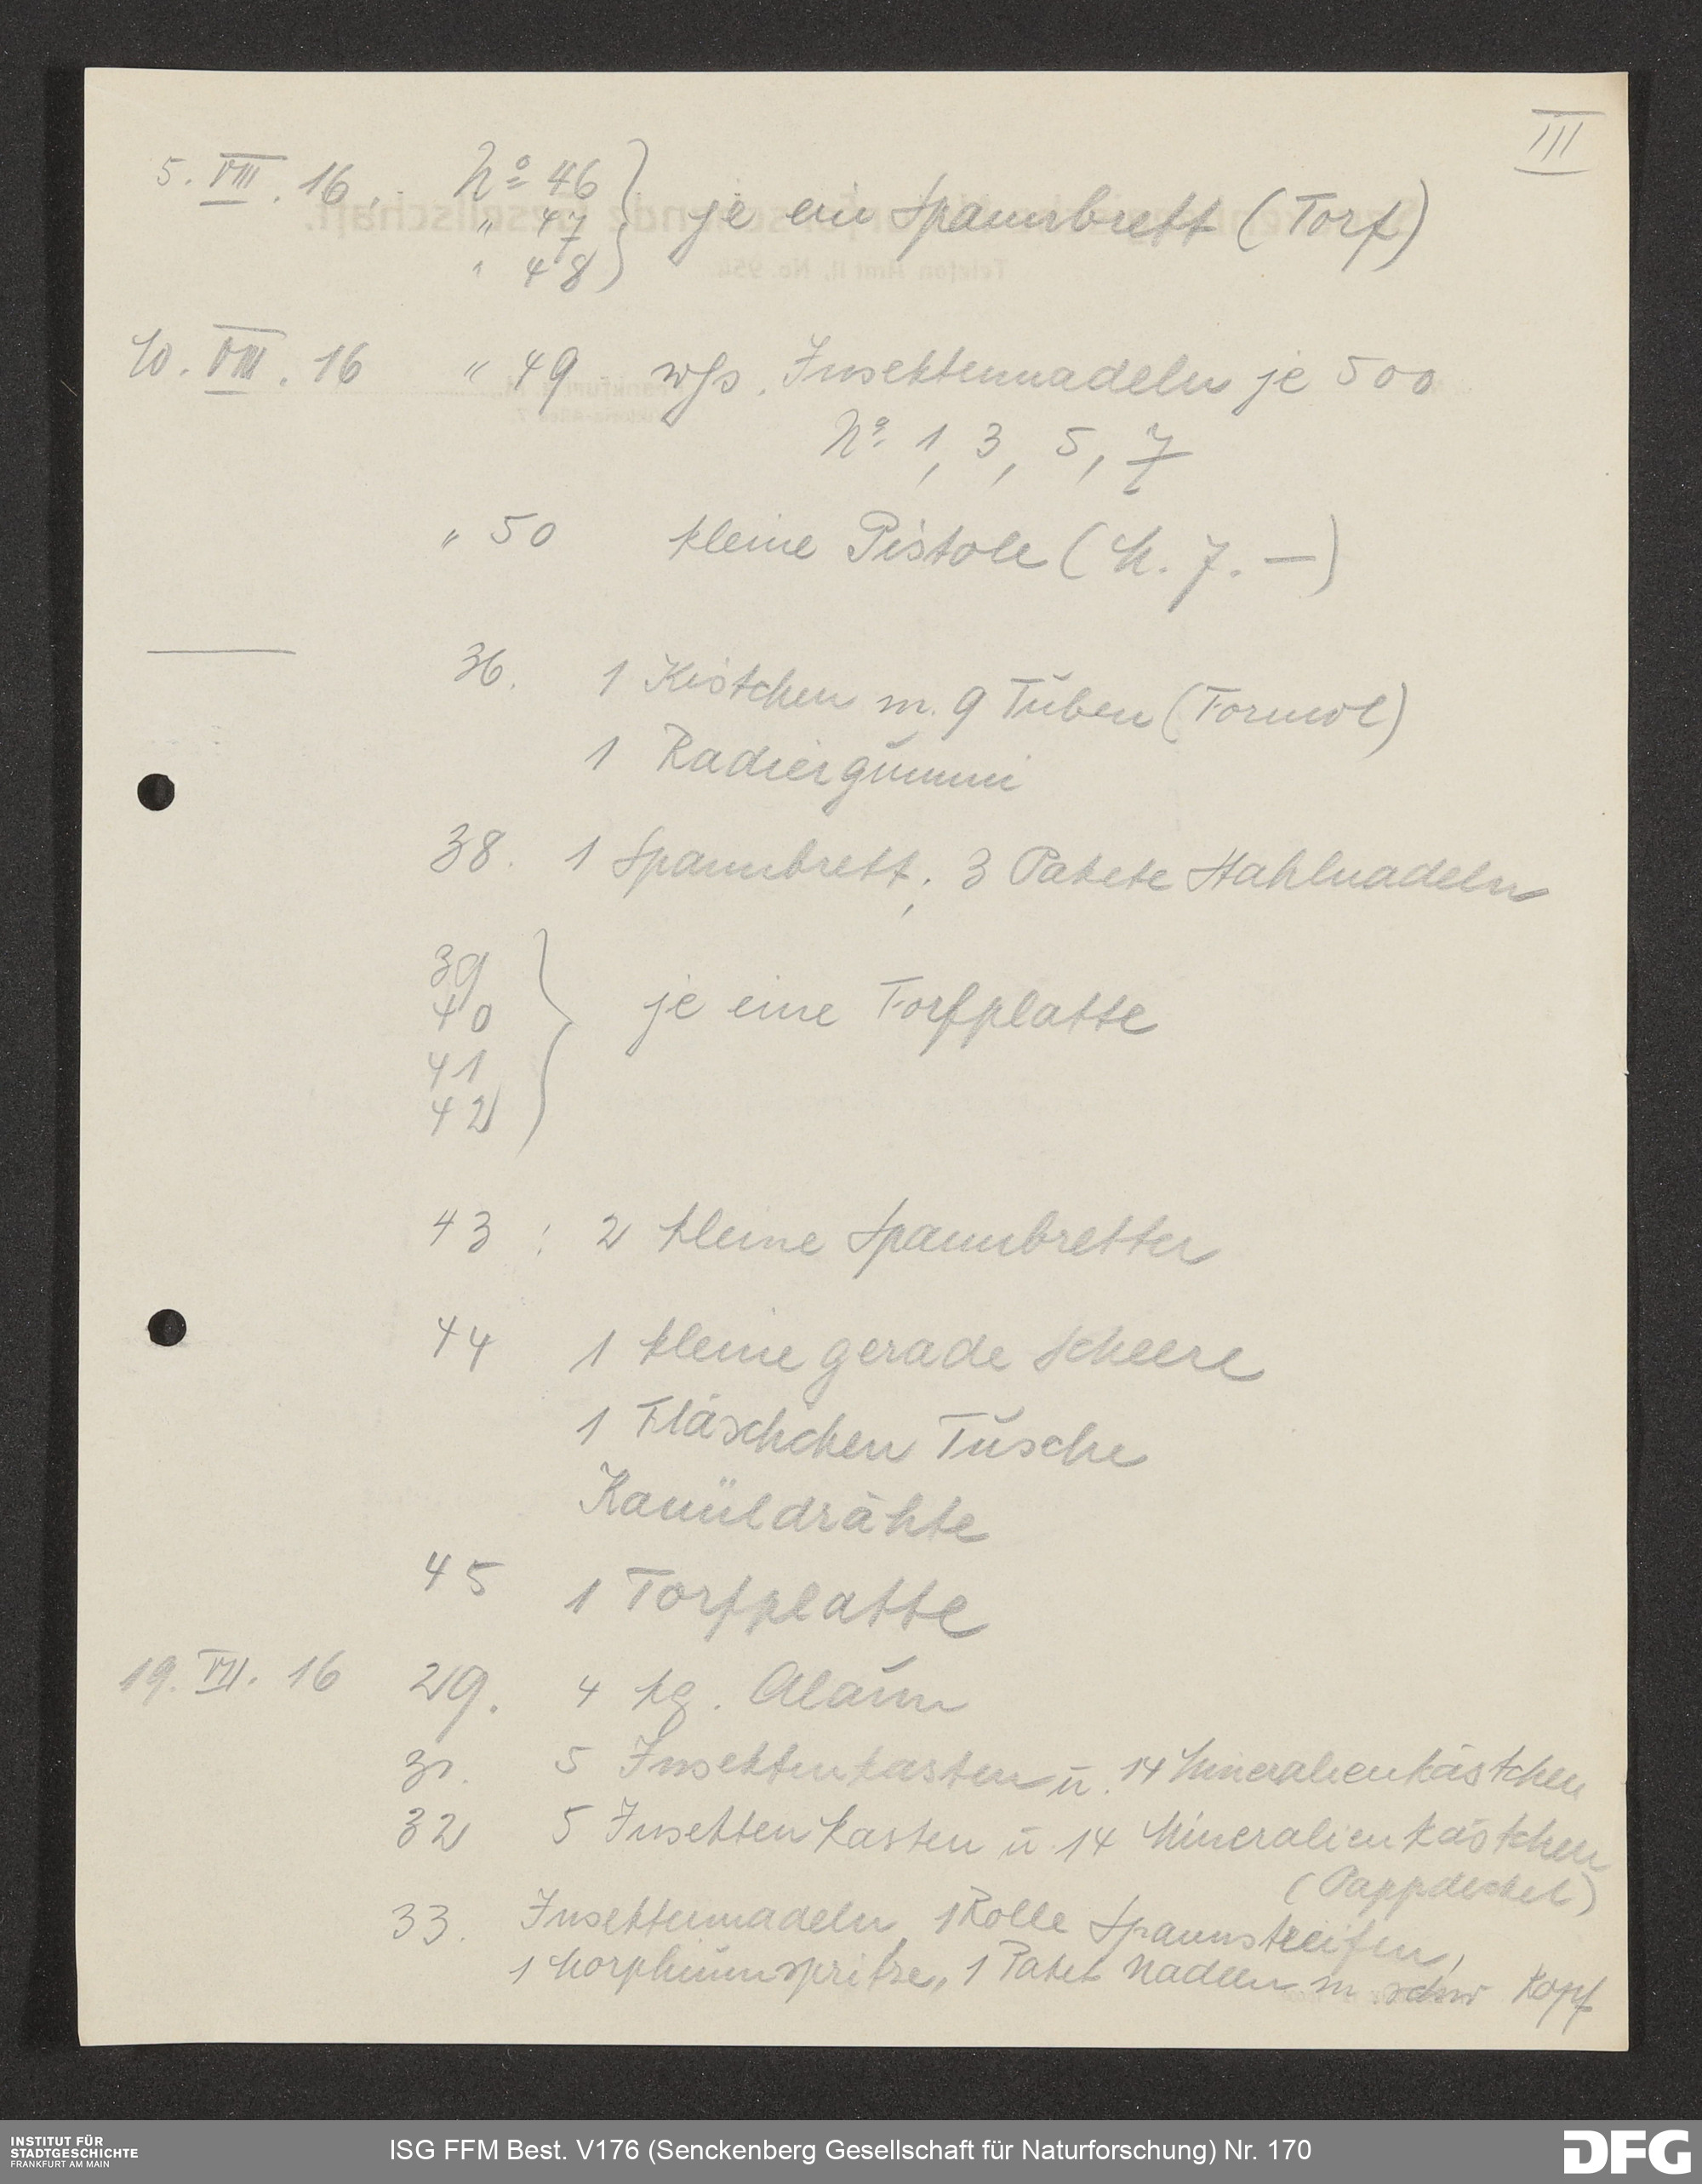 III
5. VIII. 16. No 46
" 47 je ein Spannbrett (Torf)
" 48
10. VIII. 16 " 49 wss. Insektennadeln je 500
No. 1, 3, 5, 7
" 50 kleine Pistole (M. 7. —)
36. 1 Kistchen m. 9 Tuben (Formol)
1 Radiergummi
38. 1 Spannbrett; 3 Pakete Stahlnadeln
39
40 je eine Torfplatte
41
42
43 : 2 kleine Spannbretter
44 1 kleine gerade Scheere
1 Fläschchen Tusche
Kanüldrähte
45 1 Torfplatte
19. VII. 16 29. 4 kg. Alaun
31. 5 Insektenkasten u. 14 Mineralienkästchen
32 5 Insektenkasten u 14 Mineralienkästchen
(Pappdeckel)
33. Insektennadeln, 1 Rolle Spannstreifen,
1 Morphiumspritze, 1 Paket Nadeln m. schw Kopf
INSTITUT FÜR
STADTGESCHICHTE
FRANKFURT AM MAIN
ISG FFM Best. V176 (Senckenberg Gesellschaft für Naturforschung) Nr. 170
DFG